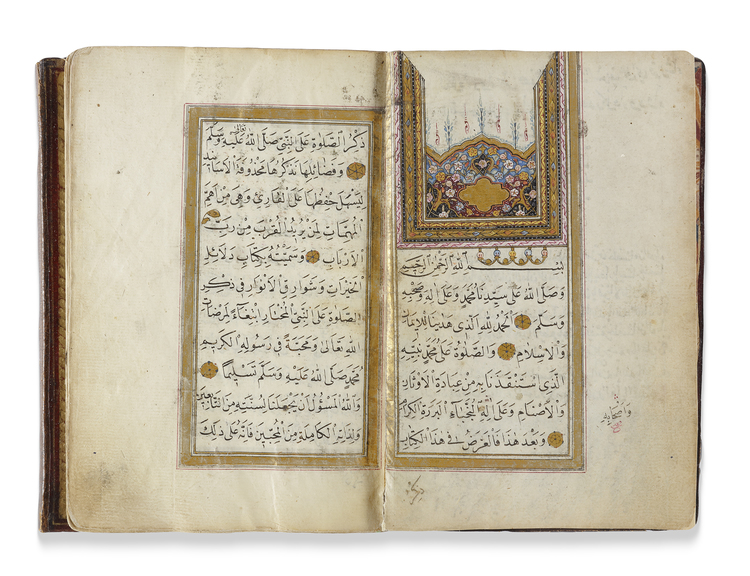 بِسْمِ اللهِ الرَّحْمٰنِ الرَّحِيمِ
وَصَلَّى اللهُ عَلٰى سَيِّدِنَا مُحَمَّدٍ وَعَلٰى اٰلِهِ وَصَحْبِهِ
وَسَلَّمَ اَلْحَمْدُ لِلّٰهِ الَّذِى هَدٰينَا لِلْاِيمَانِ
وَالْاِسْلَامِ وَالصَّلٰوةُ عَلٰى مُحَمَّدٍ نَبِيِّهِ
الَّذِى اسْتَنْقَذَنَا بِهِ مِنْ عِبَادَةِ الْاَوْثَانِ
وَالْاَصْنَامِ وَعَلٰى اٰلِهِ النُّجَبَاءِ الْبَرَرَةِ الْكِرَامِ
وَبَعْدَ هٰذَا فَالْغَرَضُ فِى هٰذَا الْكِتَابِ
وَاَصْحَابِهِ
ذِكْرُ
ذِكْرُ الصَّلٰوةِ عَلَى النَّبِىِّ صَلَّى اللهُ تعالى عَلَيْهِ وَسَلَّمَ
وَفَضَائِلِهَا نَذْكُرُهَا مَحْذُوفَةَ الْاَسَانِيدِ
لِيَسْهُلَ حِفْظُهَا عَلَى الْقَارِى وَهِىَ مِنْ اَهَمِّ
الْمُهِمَّاتِ لِمَنْ يُرِيدُ الْقُرْبَ مِنْ رَبِّ
الْاَرْبَابِ وَسَمَّيْتُهُ بِكِتَابِ دَلَائِلِ
الْخَيْرَاتِ وَشَوَارِقِ الْاَنْوَارِ فِى ذِكْرِ
الصَّلٰوةِ عَلَى النَّبِىِّ الْمُخْتَارِ ابْتِغَاءً لِمَرْضَاتِ
اللهِ تَعَالٰى وَمَحَبَّةً فِى رَسُولِهِ الْكَرِيمِ
مُحَمَّدٍ صَلَّى اللهُ عَلَيْهِ وَسَلَّمَ تَسْلِيمًا
وَاللهُ الْمَسْؤُلُ اَنْ يَجْعَلَنَا لِسُنَّتِهِ مِنَ التَّابِعِينَ
وَلِذَاتِهِ الْكَامِلَةِ مِنَ الْمُحِبِّينَ فَاِنَّهُ عَلٰى ذٰلِكَ